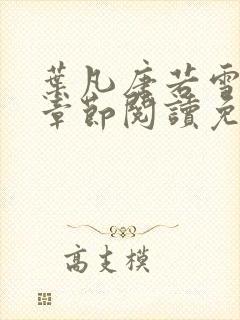 葉凡唐若雪
章節閱讀免
高支模